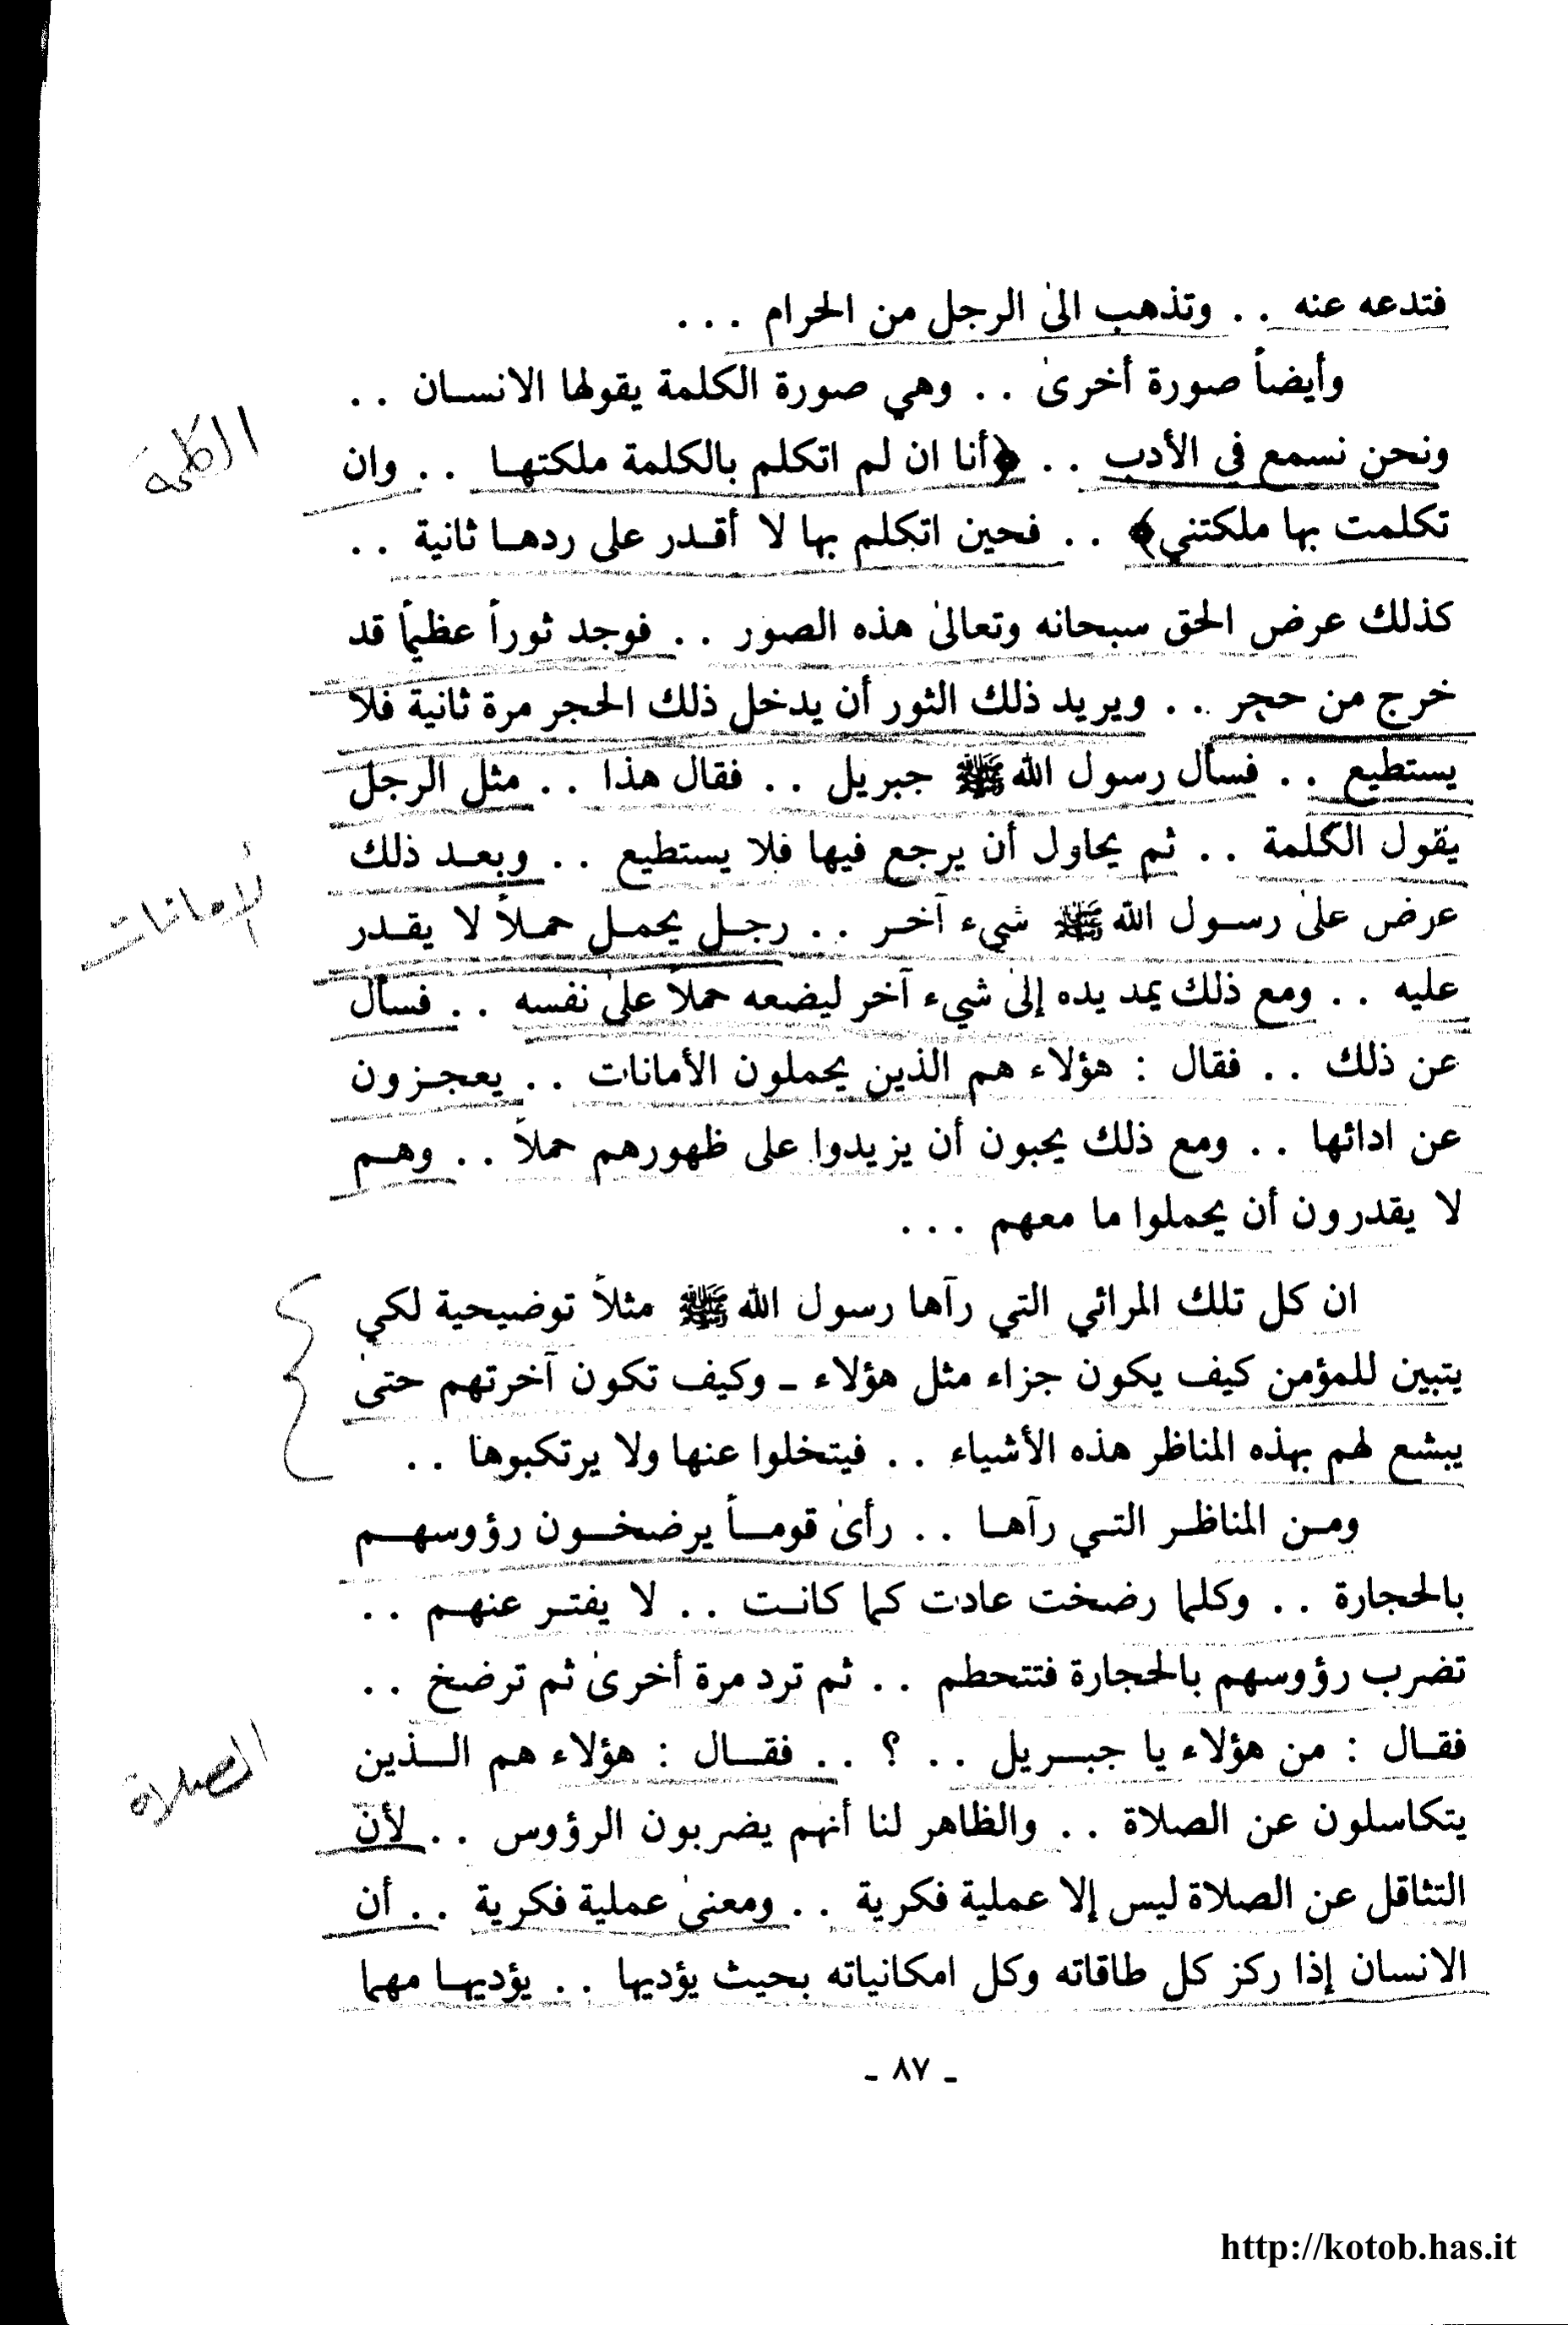 فتدعه عنه . . وتذهب الىٰ الرجل من الحرام . . .
وأيضاً صورة أخرىٰ . . وهي صورة الكلمة يقولها الانسـان . .
الكلمة
ونحن نسمع في الأدب . . ﴿أنا ان لم اتكلم بالكلمة ملكتهـا . . وان
تكلمت بها ملكتني﴾ . . فحين اتكلم بها لا أقـدر على ردهـا ثانية . .
كذلك عرض الحق سبحانه وتعالىٰ هذه الصور . . فوجد ثوراً عظيماً قد
خرج من حجر . . ويريد ذلك الثور أن يدخل ذلك الحجر مرة ثانية فلا
يستطيع . . فسأل رسول الله ﷺ جبريل . . فقال هذا . . مثل الرجل
يقول الكلمة . . ثم يحاول أن يرجع فيها فلا يستطيع . . وبعـد ذلك
الأمانات
عرض علىٰ رسـول الله ﷺ شيء آخـر . . رجـل يحمـل حمـلاً لا يقـدر
عليه . . ومع ذلك يمد يده إلىٰ شيء آخر ليضعه حملاً علىٰ نفسه . . فسأل
عن ذلك . . فقال : هؤلاء هم الذين يحملون الأمانات . . يعجـزون
عن ادائها . . ومع ذلك يحبون أن يزيدوا على ظهورهم حملاً . . وهـم
لا يقدرون أن يحملوا ما معهم . . .
ان كل تلك المرائي التي رآها رسول الله ﷺ مثلاً توضيحية لكي
يتبين للمؤمن كيف يكون جزاء مثل هؤلاء ـ وكيف تكون آخرتهم حتىٰ
يبشع لهم بهذه المناظر هذه الأشياء . . فيتخلوا عنها ولا يرتكبوها . .
ومـن المناظـر التـي رآهـا . . رأىٰ قومـاً يرضخـون رؤوسهـم
بالحجارة . . وكلما رضخت عادت كما كانـت . . لا يفتـر عنهـم . .
تضرب رؤوسهم بالحجارة فتتحطم . . ثم ترد مرة أخرىٰ ثم ترضخ . .
فقـال : من هؤلاء يا جبـريل . . ؟ . . فقـال : هؤلاء هم الـذين
الصلاة
يتكاسلون عن الصلاة . . والظاهر لنا أنهم يضربون الرؤوس . . لأن
التثاقل عن الصلاة ليس إلا عملية فكرية . . ومعنىٰ عملية فكرية . . أن
الانسان إذا ركز كل طاقاته وكل امكانياته بحيث يؤديها . . يؤديهـا مهما
ـ ٨٧ ـ
http://kotob.has.it